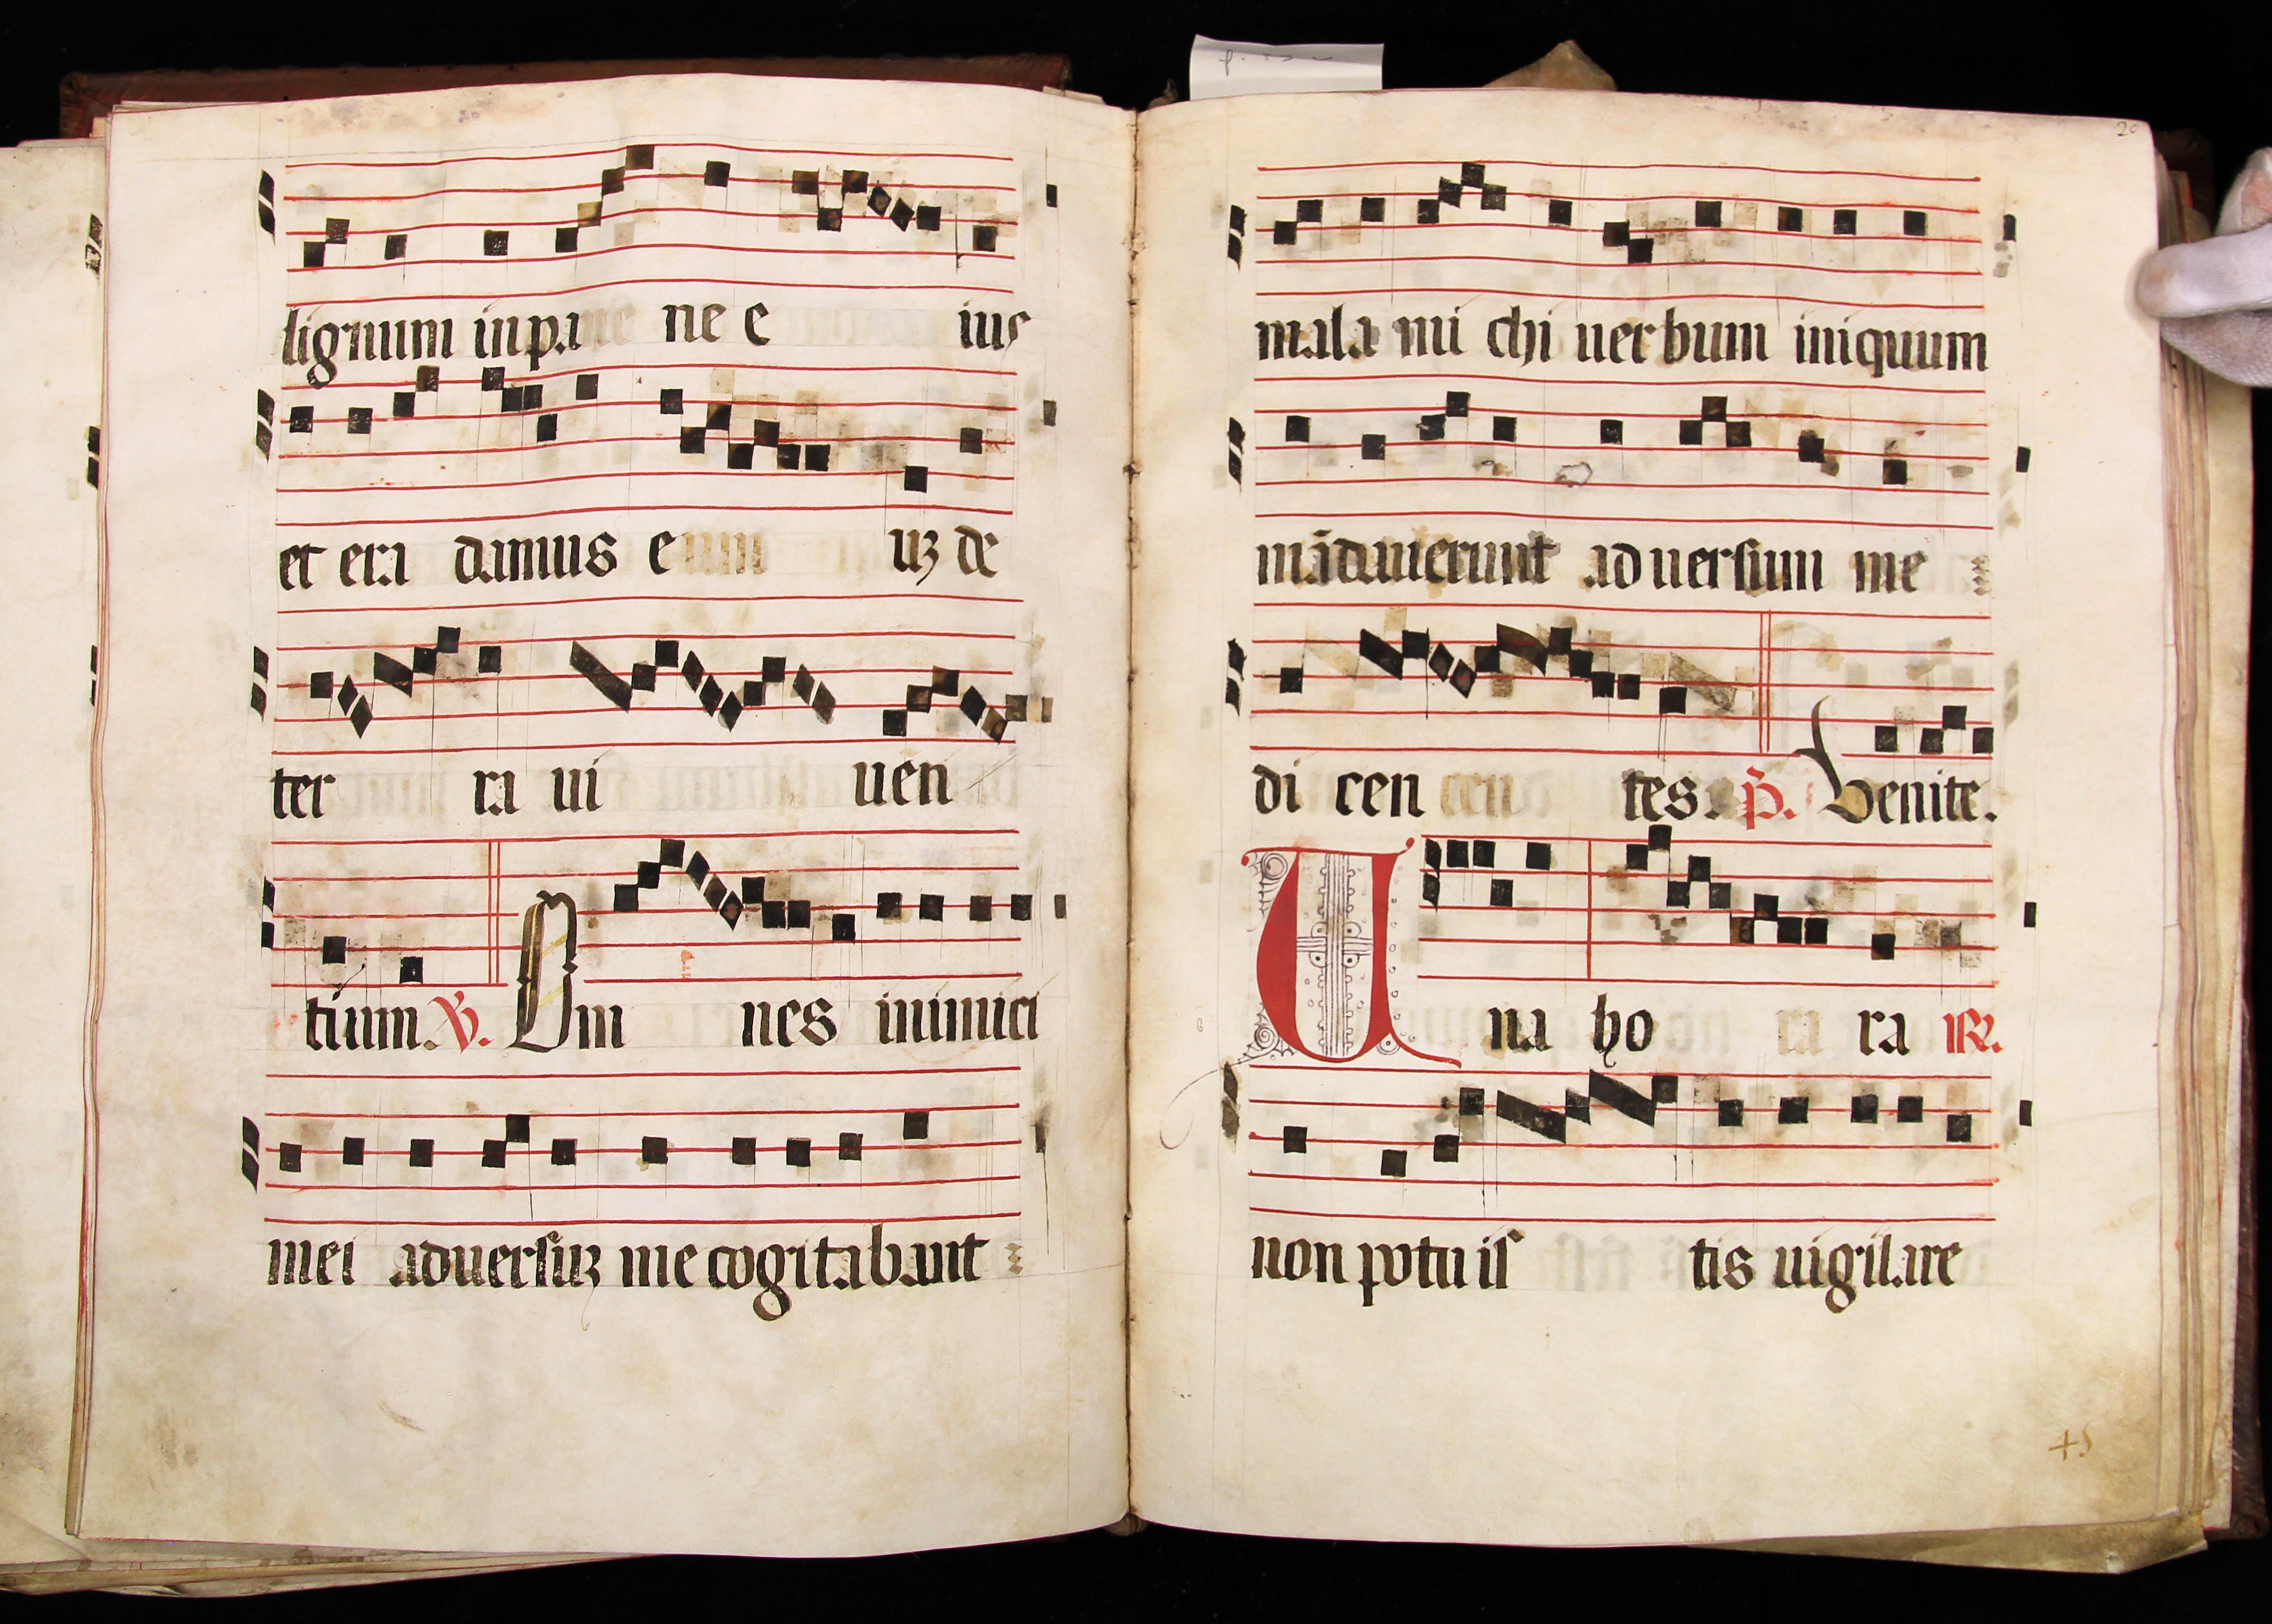 lignum in pa ne e ius
et era damus e uʒ de
ter ra ui uen
tium. V. Om nes inimici
mei aduersuʒ me cogitabant
20
mala mi chi uerbum iniquum
mādauerunt aduersum me
di cen tes. p̄. Venite.
Una ho ra R.
non potu is tis uigilare
45